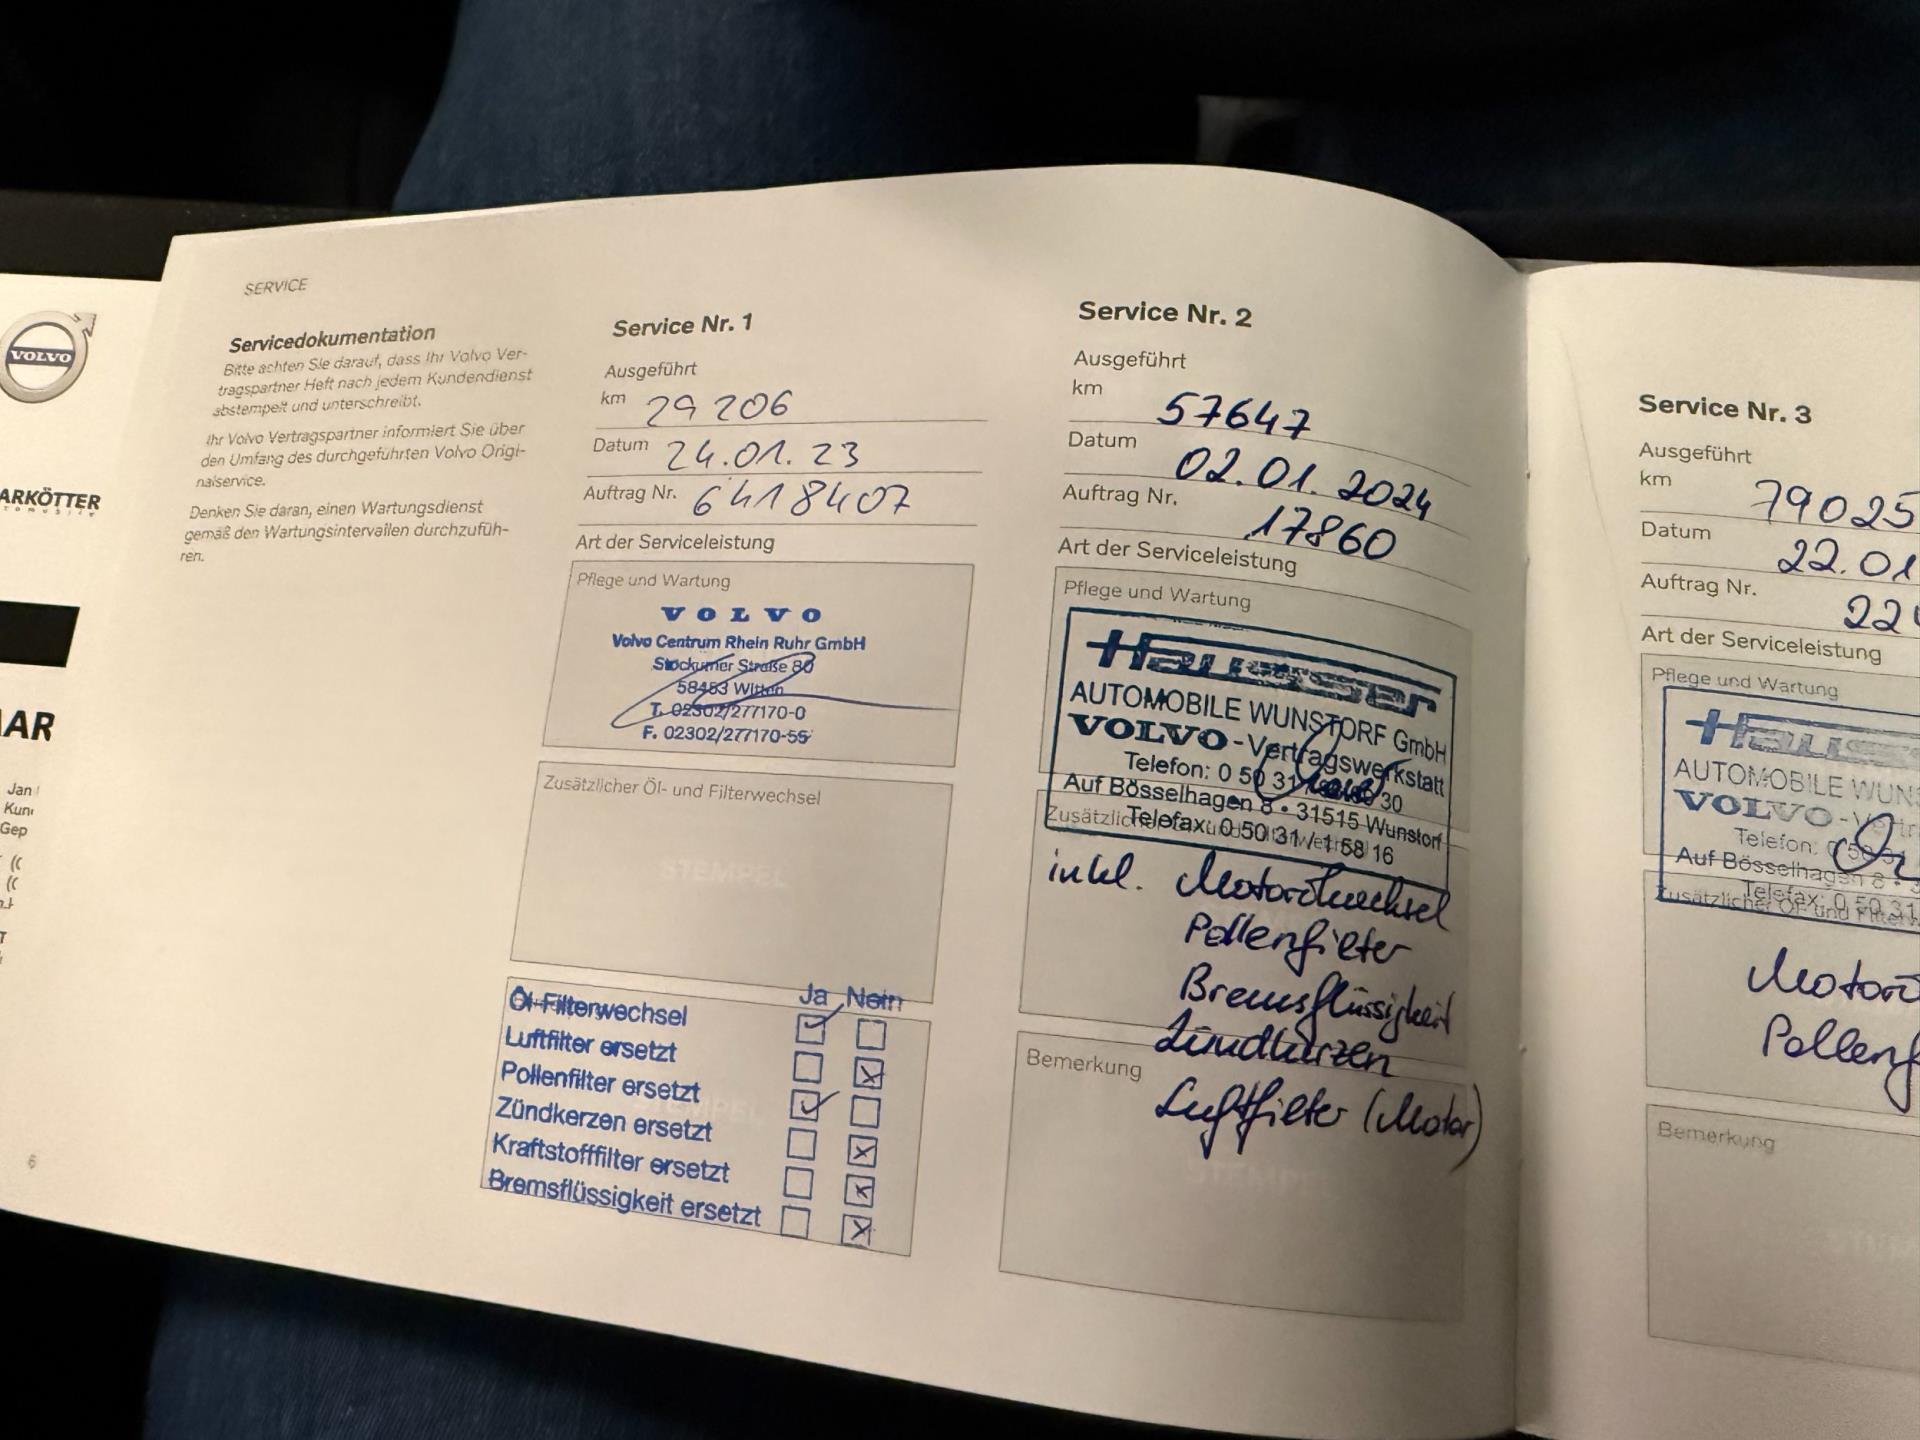 VOLVO
ARKÖTTER
AR
Jan
Kun
Gep
SERVICE
Servicedokumentation
Bitte achten Sie darauf, dass Ihr Volvo Ver-
tragspartner Heft nach jedem Kundendienst
abstempelt und unterschreibt.
Ihr Volvo Vertragspartner informiert Sie über
den Umfang des durchgeführten Volvo Origi-
nalservice.
Denken Sie daran, einen Wartungsdienst
gemäß den Wartungsintervallen durchzufüh-
ren.
6
Service Nr. 1
Ausgeführt
km 29 206
Datum 24.01.23
Auftrag Nr. 6418407
Art der Serviceleistung
Pflege und Wartung
VOLVO
Volvo Centrum Rhein Ruhr GmbH
Stockumer Straße 80
58453 Witten
T. 02302/277170-0
F. 02302/277170-55
Zusätzlicher Öl- und Filterwechsel
STEMPEL
Ja Nein
Öl-Filterwechsel
Luftfilter ersetzt
Pollenfilter ersetzt
Zündkerzen ersetzt
Kraftstofffilter ersetzt
Bremsflüssigkeit ersetzt
Service Nr. 2
Ausgeführt
km 57647
Datum 02.01.2024
Auftrag Nr. 17860
Art der Serviceleistung
Pflege und Wartung
AUTOMOBILE WUNSTORF GmbH
VOLVO-Vertragswerkstatt
Telefon: 0 50 31 30
Auf Bösselhagen 8 • 31515 Wunstorf
Telefax: 0 50 31 / 1 58 16
Zusätzlicher
inkl. Motorölwechsel
Pollenfilter
Bremsflüssigkeit
Zündkerzen
Luftfilter (Motor)
Bemerkung
Service Nr. 3
Ausgeführt
km 79025
Datum 22.01
Auftrag Nr. 22
Art der Serviceleistung
Pflege und Wartung
AUTOMOBILE WUNS
VOLVO-Vertr
Telefon: 0 50 31
Auf Bösselhagen 8 •
Telefax: 0 50 31
Zusätzlicher Öl- und Filterw
Motorö
Pollenf
Bemerkung